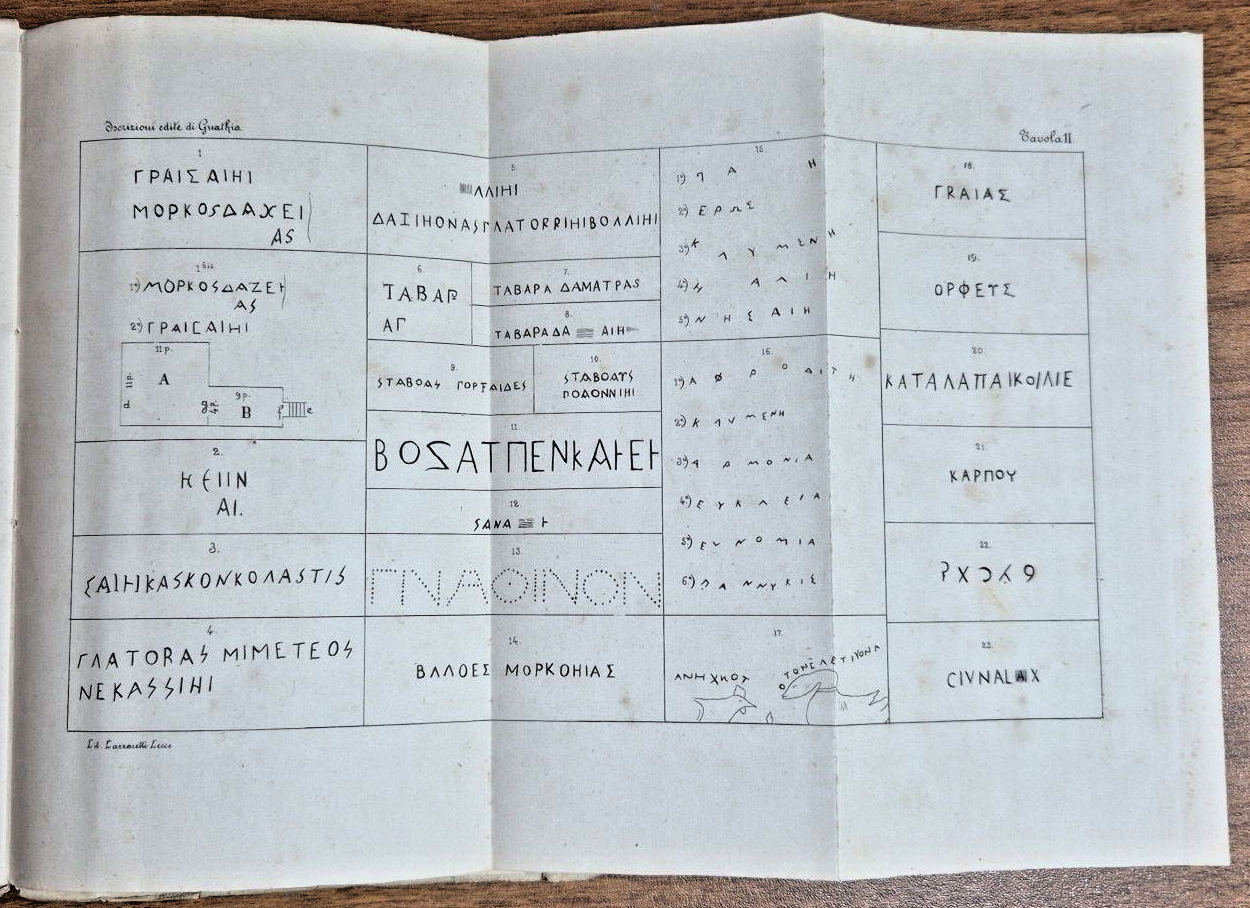 Iscrizioni edite di Gnathia
Tavola II
1
ΓΡΑΙΣΑΙΗΙ
ΜΟΡΚΟSΔΑΧΕΙ
ΑS
1 bis
1º) ΜΟΡΚΟSΔΑΖΕⱵ
ΑS
2º) ΓΡΑΙCΑΙΗΙ
11 p.
11 p.
A
d
g
9 p.
B
f
e
2.
ⱵΕΙΙΝ
ΑΙ.
3.
ΣΑΙⱵΙΚΑSΚΟΝΚΟΛΑSΤΙS
4.
ΓΛΑΤΟRΑS ΜΙΜΕΤΕΟS
ΝΕΚΑSSΙΗΙ
5
ΛΛΙΗΙ
ΔΑΞΙΗΟΝΑSΓΛΑΤΟRRΙΗΙΒΟΛΛΙΗΙ
6
ΤΑΒΑR
ΑΓ
7.
ΤΑΒΑRΑ ΔΑΜΑΤRΑS
8.
ΤΑΒΑRΑΔΑ ΑΙΗ
9.
SΤΑΒΟΑS ΓΟΡΞΑΙΔΕS
10.
SΤΑΒΟΑΥS
ΠΟΔΟΝΝΙΗΙ
11.
ΒΟΣΑΤΠΕΝΚΑⱵΕⱵ
12
SΑΝΑ Ⱶ
13.
ΓΝΑΘΙΝΟΝ
14.
ΒΑΛΟΕΣ ΜΟΡΚΟΗΙΑΣ
15.
1º) Π Α Η
2º) ΕΡΩΣ
3º) ΚΛΥΜΕΝΗ
4º) ΑΛΙΗ
5º) ΝΗΣΑΙΗ
16.
1º) ΑΦΡΟΔΙΤΗ
2º) ΚΛΥΜΕΝΗ
3º) ΑΡΜΟΝΙΑ
4º) ΕΥΚΛΕΙΑ
5º) ΕΥΝΟΜΙΑ
6º) ΠΑΝΝΥΚΙΣ
17.
18.
ΓRΑΙΑΣ
19.
ΟΡΦΕΤΣ
20.
ΚΑΤΑΛΑΠΑΙΚΟ/ΛΙΕ
21.
ΚΑΡΠΟΥ
22.
23.
CIVNAL X
Lit. Lazzaretti Lecce